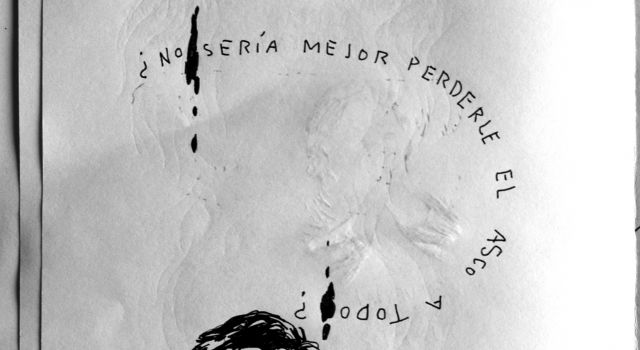 ¿NO SERÍA MEJOR PERDERLE EL ASCO A TODO?